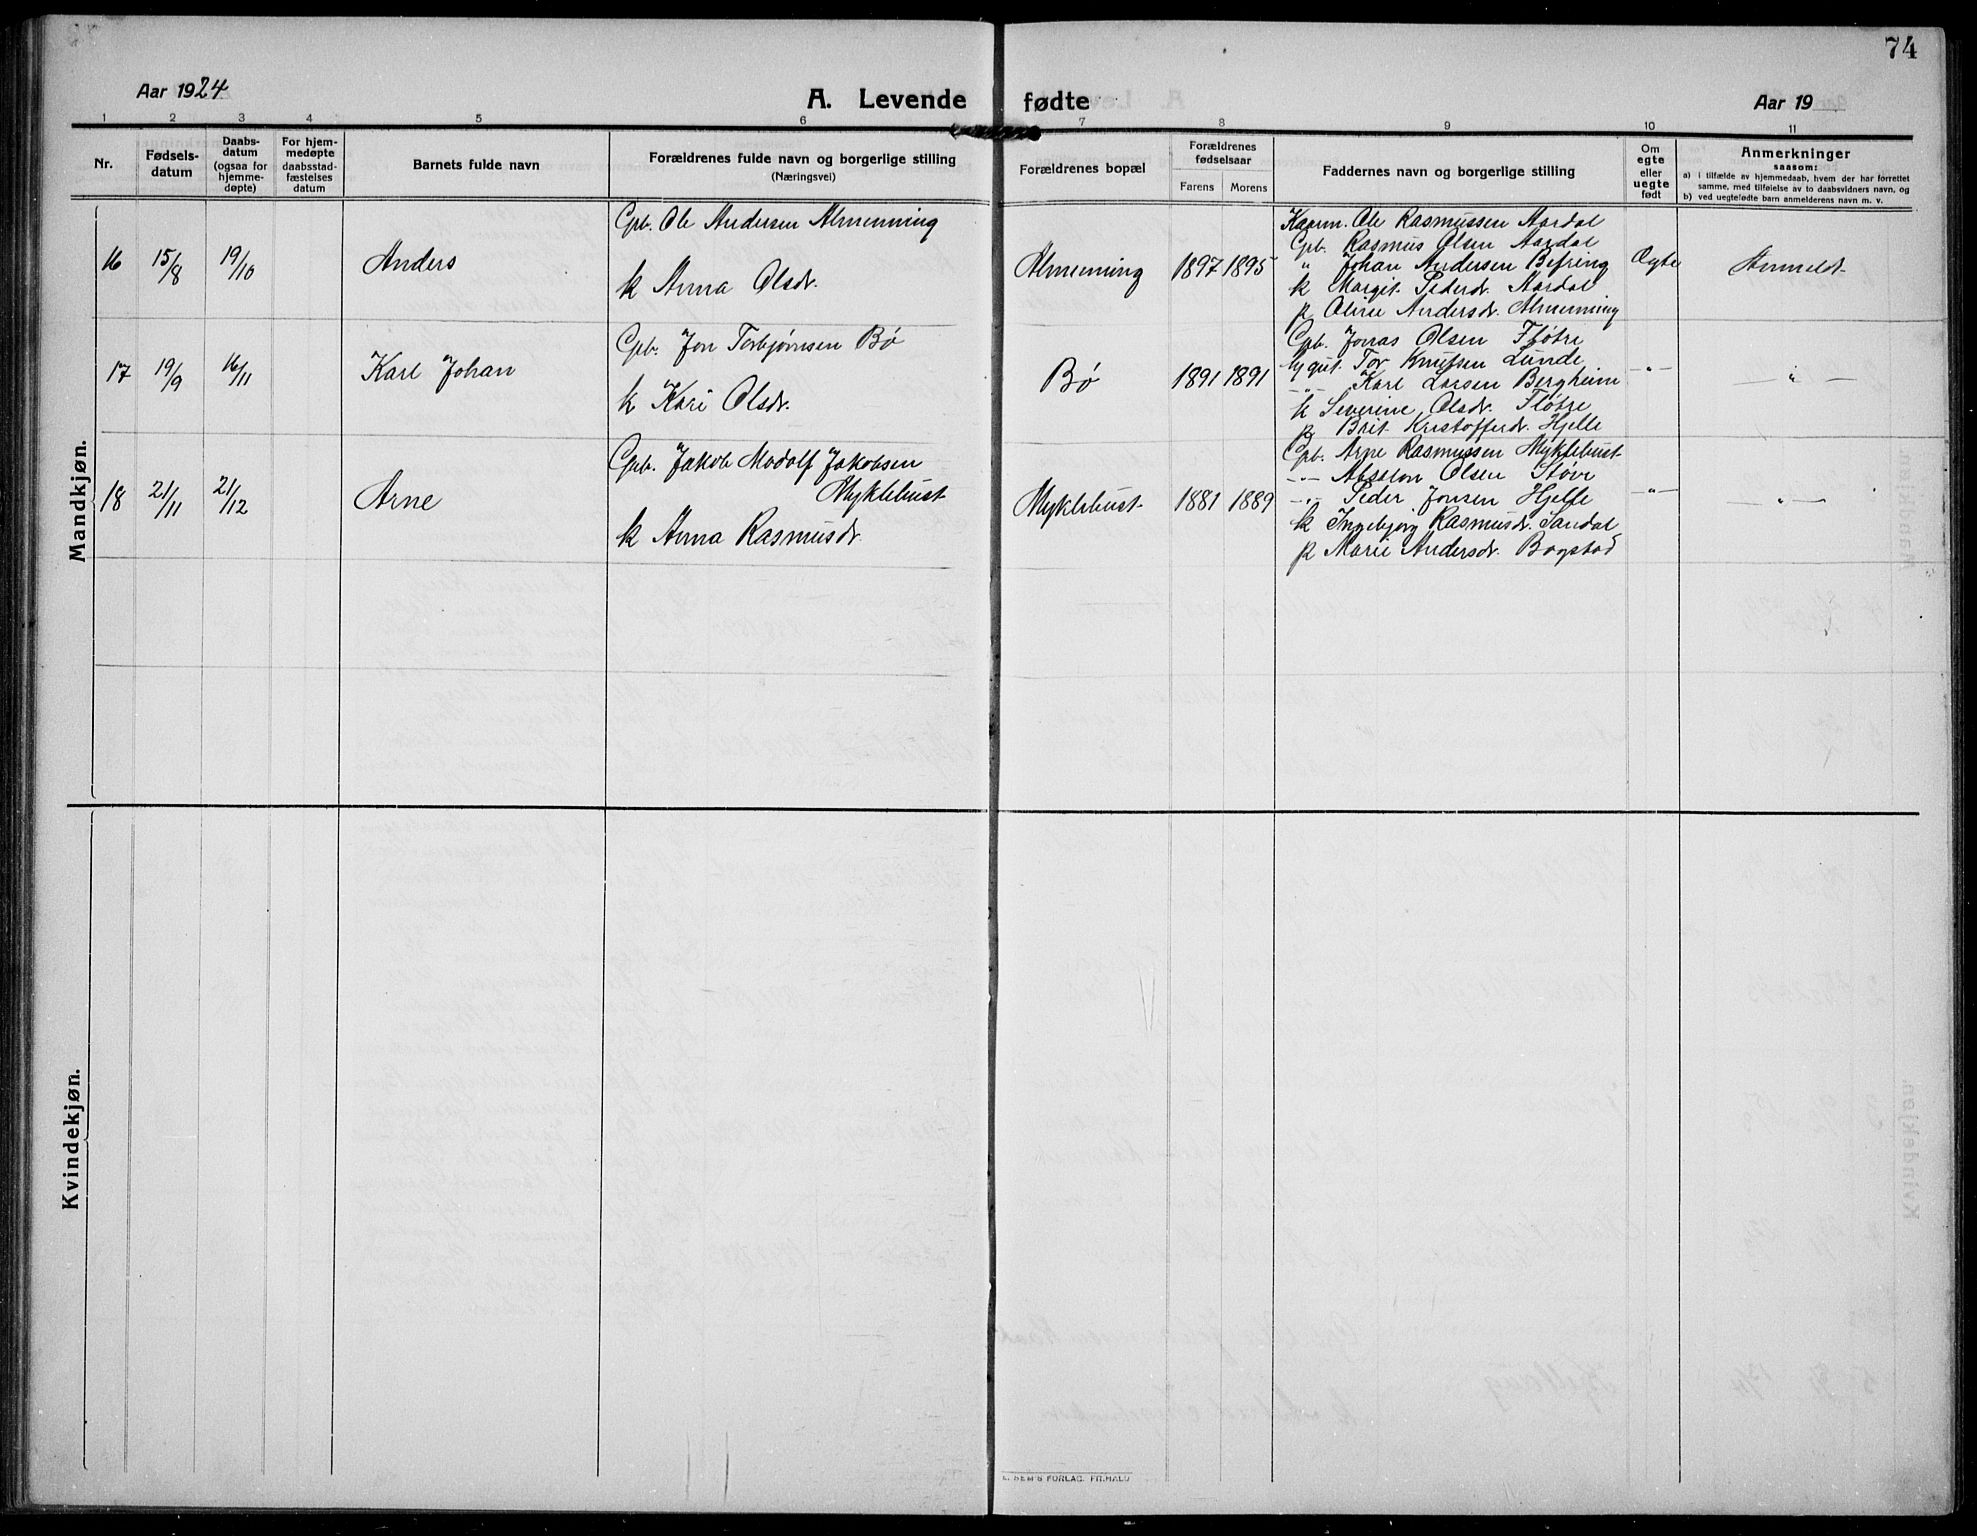 74
Aar 1924
A. Levende fødte
Aar 19
1 2 3 4 5 6 7 8 9 10 11
Nr.
Fødsels-
datum
Daabs-
datum
(ogsaa for
hjemme-
døpte)
For hjem-
medøpte
daabsstad-
fæstelses
datum
Barnets fulde navn
Forældrenes fulde navn og borgerlige stilling
(Næringsvei)
Forældrenes bopæl
Forældrenes
fødselsaar
Farens Morens
Faddernes navn og borgerlige stilling
Om
egte
eller
uegte
født
Anmerkninger
saasom:
a) i tilfælde av hjemmedaab, hvem der har forrettet
samme, med tilføielse av to daabsvidners navn, og
b) ved uegtefødte barn anmelderens navn m. v.
Mandkjøn.
16 15/8 19/10 Anders
Gpb. Ole Andersen Almenning
k Anna Olsdr.
Almenning 1897 1895
Kaarm. Ole Rasmussen Aardal
Gpb. Rasmus Olsen Aardal
" Johan Andersen Befring
k Margit Pedersdr. Aardal
p Oline Andersdr. Almenning
Ægte Anmeldt
17 19/9 16/11 Karl Johan
Gpb. Jon Torbjørnsen Bø
k Kari Olsdr.
Bø 1891 1891
Gpb. Jonas Olsen Fløtre
Ygut. Tor Knutsen Lunde
-"- Karl Larsen Bergheim
k Severine Olsdr. Fløtre
p Brit Kristofferdr. Hjelle
-"- -"-
18 21/11 21/12 Arne
Gpb. Jakob Modolf Jakobsen
Myklebust
k Anna Rasmusdr.
Myklebust 1881 1889
Gpb. Arne Rasmussen Myklebust
-"- Absalon Olsen Støve
-"- Peder Jonsen Hjelle
k Ingebjørg Rasmusdr. Sandal
p Marie Andersdr. Bogstad
-"- -"-
Kvindekjøn.
E. SEM'S FORLAG. FR.HALD